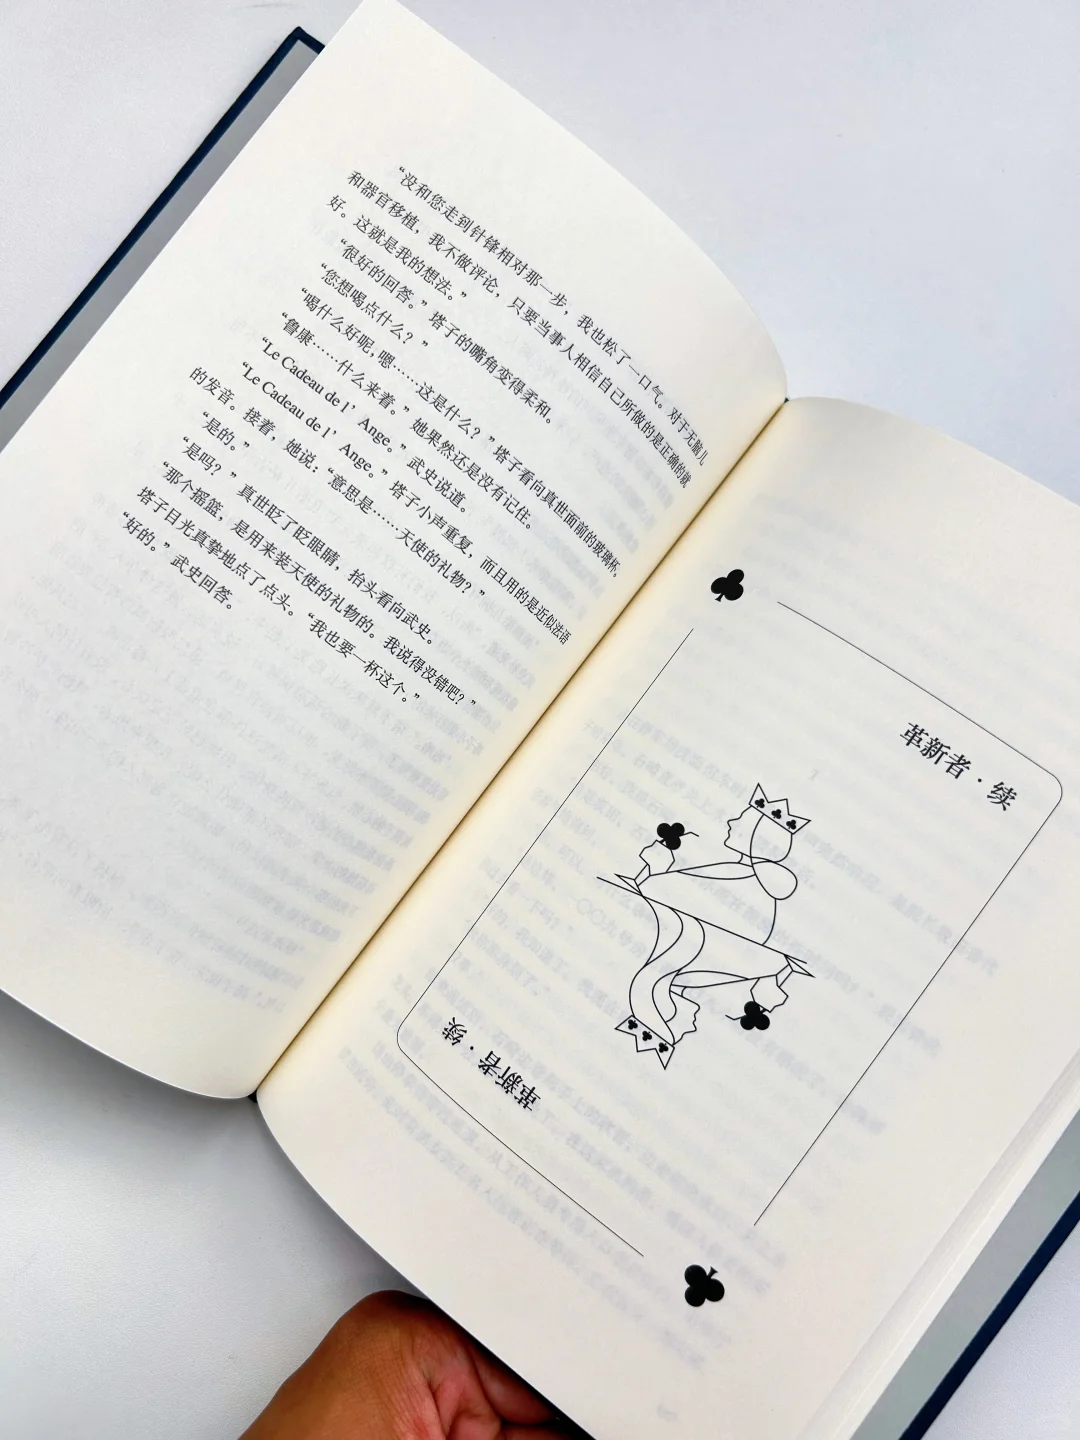 “没和您走到针锋相对那一步，我也松了一口气。对于无脑儿
和器官移植，我不做评论，只要当事人相信自己所做的是正确的就
好。这就是我的想法。”
“很好的回答。”塔子的嘴角变得柔和。
“您想喝点什么？”
“喝什么好呢，嗯……这是什么？”塔子看向真世面前的玻璃杯。
“鲁康……什么来着。”她果然还是没有记住。
“Le Cadeau de l’Ange。”武史说道。
“Le Cadeau de l’Ange。”塔子小声重复，而且用的是近似法语
的发音。接着，她说：“意思是……天使的礼物？”
“是的。”
“是吗？”真世眨了眨眼睛，抬头看向武史。
“那个摇篮，是用来装天使的礼物的。我说得没错吧？”
塔子目光真挚地点了点头。“我也要一杯这个。”
“好的。”武史回答。
革新者·续
革新者·续